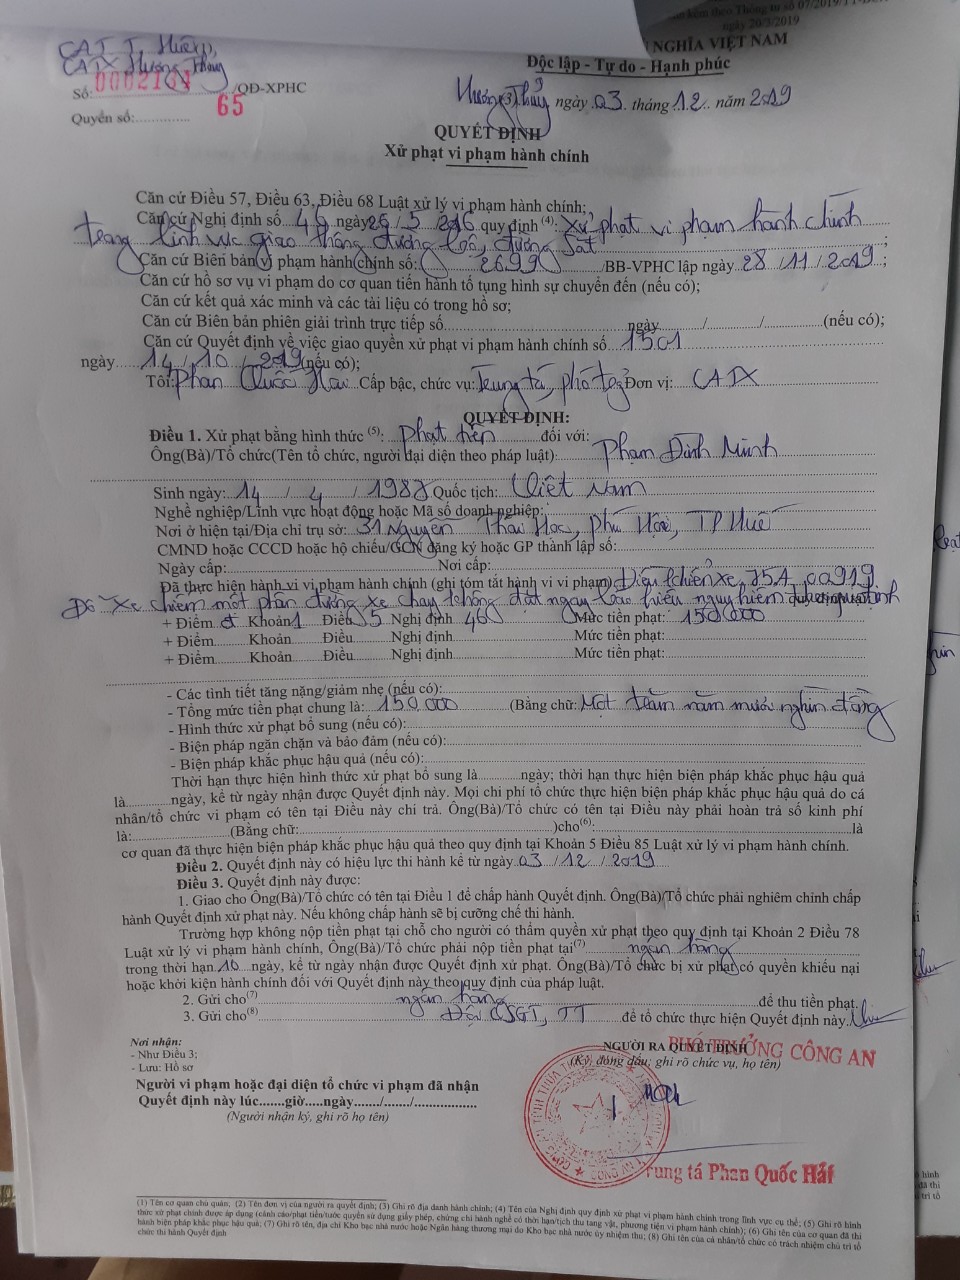 kèm theo Thông tư số 07/2019/TT-B
ngày 20/3/2019
NGHĨA VIỆT NAM
Độc lập - Tự do - Hạnh phúc
CAT T. Huế
CATX Hương Thủy
Số: /QĐ-XPHC
Quyển số: 65
Hương (3) Thủy ngày 03 tháng 12 năm 2019
QUYẾT ĐỊNH
Xử phạt vi phạm hành chính
Căn cứ Điều 57, Điều 63, Điều 68 Luật xử lý vi phạm hành chính;
Căn cứ Nghị định số 46 ngày 26/5/2016 quy định (4): Xử phạt vi phạm hành chính
trong lĩnh vực giao thông đường bộ, đường sắt;
Căn cứ Biên bản vi phạm hành chính số: 2699 /BB-VPHC lập ngày 28/11/2019;
Căn cứ hồ sơ vụ vi phạm do cơ quan tiến hành tố tụng hình sự chuyển đến (nếu có);
Căn cứ kết quả xác minh và các tài liệu có trong hồ sơ;
Căn cứ Biên bản phiên giải trình trực tiếp số ngày / / (nếu có);
Căn cứ Quyết định về việc giao quyền xử phạt vi phạm hành chính số 1501
ngày 14/10/2019 (nếu có);
Tôi: Phan Quốc Hải Cấp bậc, chức vụ: Trung tá, phó tcg Đơn vị: CATX
QUYẾT ĐỊNH:
Điều 1. Xử phạt bằng hình thức (5): phạt tiền đối với:
Ông(Bà)/Tổ chức(Tên tổ chức, người đại diện theo pháp luật): Phạm Đình Minh
Sinh ngày: 14 / 4 / 1988 Quốc tịch: Việt Nam
Nghề nghiệp/Lĩnh vực hoạt động hoặc Mã số doanh nghiệp:
Nơi ở hiện tại/Địa chỉ trụ sở: 31 Nguyễn Thái Học, Phú Hội, TP Huế
CMND hoặc CCCD hoặc hộ chiếu/GCN đăng ký hoặc GP thành lập số:
Ngày cấp: Nơi cấp:
Đã thực hiện hành vi vi phạm hành chính (ghi tóm tắt hành vi vi phạm) Điều khiển xe 75A 00919
Đỗ xe chiếm một phần đường xe chạy không đặt ngay báo hiệu nguy hiểm theo quy định
+ Điểm đ Khoản 1 Điều 5 Nghị định 46 Mức tiền phạt: 150.000
+ Điểm Khoản Điều Nghị định Mức tiền phạt:
+ Điểm Khoản Điều Nghị định Mức tiền phạt:
- Các tình tiết tăng nặng/giảm nhẹ (nếu có):
- Tổng mức tiền phạt chung là: 150.000 (Bằng chữ: Một trăm năm mươi nghìn đồng
- Hình thức xử phạt bổ sung (nếu có):
- Biện pháp ngăn chặn và bảo đảm (nếu có):
- Biện pháp khắc phục hậu quả (nếu có):
Thời hạn thực hiện hình thức xử phạt bổ sung là.........ngày; thời hạn thực hiện biện pháp khắc phục hậu quả
là.........ngày, kể từ ngày nhận được Quyết định này. Mọi chi phí tổ chức thực hiện biện pháp khắc phục hậu quả do cá
nhân/tổ chức vi phạm có tên tại Điều này chi trả. Ông(Bà)/Tổ chức có tên tại Điều này phải hoàn trả số kinh phí
là: (Bằng chữ: )cho(6): là
cơ quan đã thực hiện biện pháp khắc phục hậu quả theo quy định tại Khoản 5 Điều 85 Luật xử lý vi phạm hành chính.
Điều 2. Quyết định này có hiệu lực thi hành kể từ ngày 03 / 12 / 2019
Điều 3. Quyết định này được:
1. Giao cho Ông(Bà)/Tổ chức có tên tại Điều 1 để chấp hành Quyết định. Ông(Bà)/Tổ chức phải nghiêm chỉnh chấp
hành Quyết định xử phạt này. Nếu không chấp hành sẽ bị cưỡng chế thi hành.
Trường hợp không nộp tiền phạt tại chỗ cho người có thẩm quyền xử phạt theo quy định tại Khoản 2 Điều 78
Luật xử lý vi phạm hành chính, Ông(Bà)/Tổ chức phải nộp tiền phạt tại(7) ngân hàng
trong thời hạn 10 ngày, kể từ ngày nhận được Quyết định xử phạt. Ông(Bà)/Tổ chức bị xử phạt có quyền khiếu nại
hoặc khởi kiện hành chính đối với Quyết định này theo quy định của pháp luật.
2. Gửi cho(7) ngân hàng để thu tiền phạt.
3. Gửi cho(8) Đội CSGT, TT để tổ chức thực hiện Quyết định này.
Nơi nhận:
- Như Điều 3;
- Lưu: Hồ sơ
NGƯỜI RA QUYẾT ĐỊNH
PHÓ TRƯỞNG CÔNG AN
(Ký, đóng dấu; ghi rõ chức vụ, họ tên)
Người vi phạm hoặc đại diện tổ chức vi phạm đã nhận
Quyết định này lúc.......giờ.....ngày....../......./................
(Người nhận ký, ghi rõ họ tên)
Trung tá Phan Quốc Hải
(1) Tên cơ quan chủ quản; (2) Tên đơn vị của người ra quyết định; (3) Ghi rõ địa danh hành chính; (4) Tên của Nghị định quy định xử phạt vi phạm hành chính trong lĩnh vực cụ thể; (5) Ghi rõ hình
thức xử phạt chính được áp dụng (cảnh cáo/phạt tiền/tước quyền sử dụng giấy phép, chứng chỉ hành nghề có thời hạn/tịch thu tang vật, phương tiện vi phạm hành chính); (6) Ghi tên của cơ quan đã thi
hành biện pháp khắc phục hậu quả; (7) Ghi rõ tên, địa chỉ Kho bạc nhà nước hoặc Ngân hàng thương mại do Kho bạc nhà nước ủy nhiệm thu; (8) Ghi tên của cá nhân/tổ chức có trách nhiệm chủ trì tổ
chức thi hành Quyết định